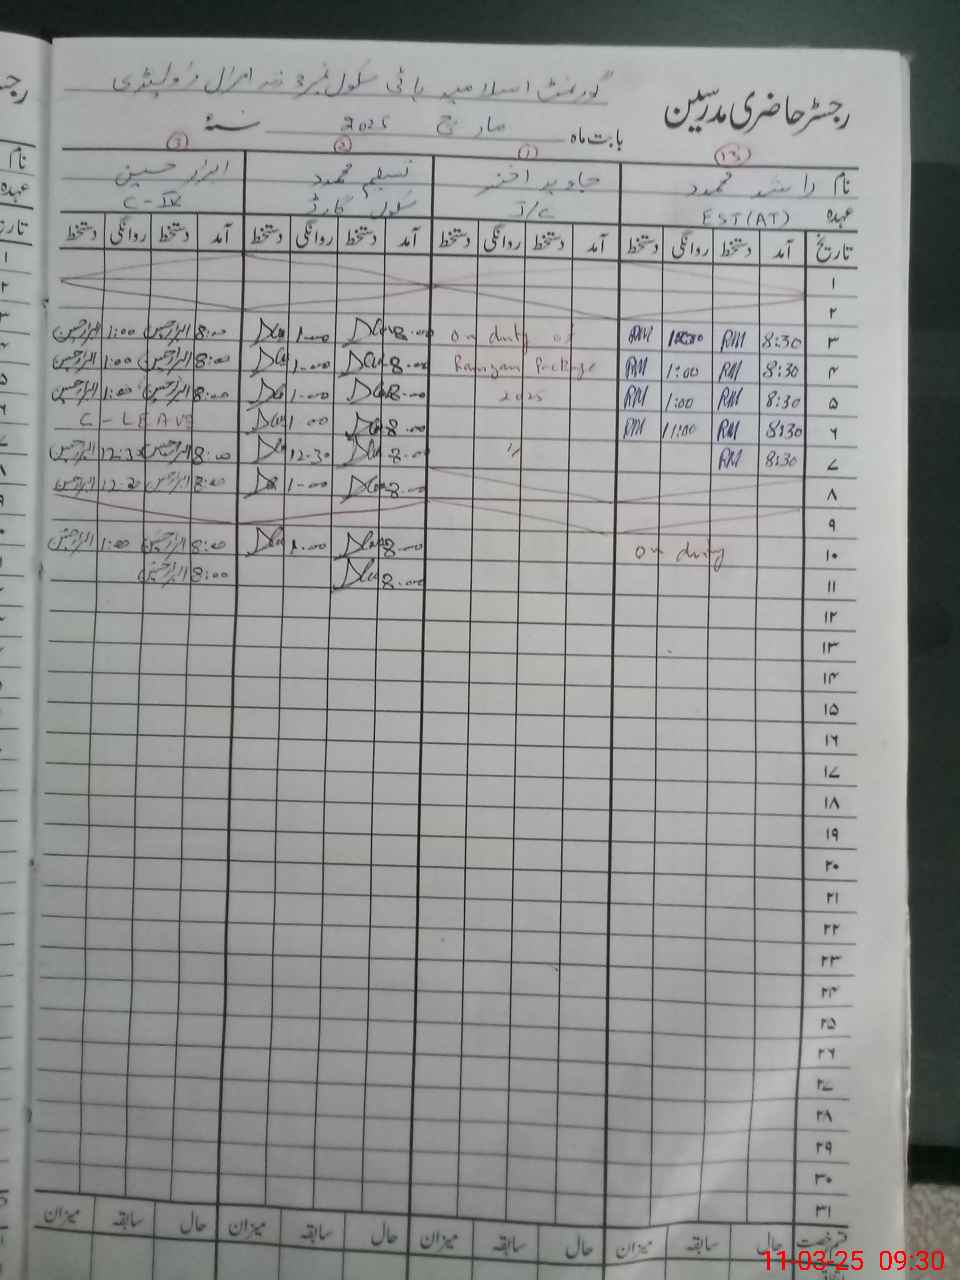 رجسٹر حاضری مدرسین
گورنمنٹ اسلامیہ ہائی سکول نمبر 3 راولپنڈی
بابت ماہ مارچ 2025 سنۂ
13 1 2 3
نام راشد محمود جاوید اختر نسیم محمود ابرار حسین
عہدہ EST(AT) J/C سکول گارڈ C-IV
تاریخ آمد دستخط روانگی دستخط آمد دستخط روانگی دستخط آمد دستخط روانگی دستخط آمد دستخط روانگی دستخط
۱
۲
۳ 8:30 RM RM On duty of 8.00 1.00 8:00 ابرار حسین 1:00 ابرار حسین
۴ 8:30 RM 1:00 RM Ramzan Package 8.00 1.00 8:00 ابرار حسین 1:00 ابرار حسین
۵ 8:30 RM 1:00 RM 2025 8.00 1.00 8:00 ابرار حسین 1:00 ابرار حسین
۶ 8:30 RM 11:00 RM 8.00 1.00 C-LEAVE
۷ 8:30 RM 8.00 12.30 8:00 ابرار حسین 12:30 ابرار حسین
۸ 8.00 1.00 8:00 ابرار حسین 12:30 ابرار حسین
۹
۱۰ On duty 8.00 1.00 8:00 ابرار حسین 1:00 ابرار حسین
۱۱ 8.00 8:00 ابرار حسین
۱۲
۱۳
۱۴
۱۵
۱۶
۱۷
۱۸
۱۹
۲۰
۲۱
۲۲
۲۳
۲۴
۲۵
۲۶
۲۷
۲۸
۲۹
۳۰
۳۱
قسم رخصت حال سابقہ میزان حال سابقہ میزان حال سابقہ میزان حال سابقہ میزان
11-03-25 09:30